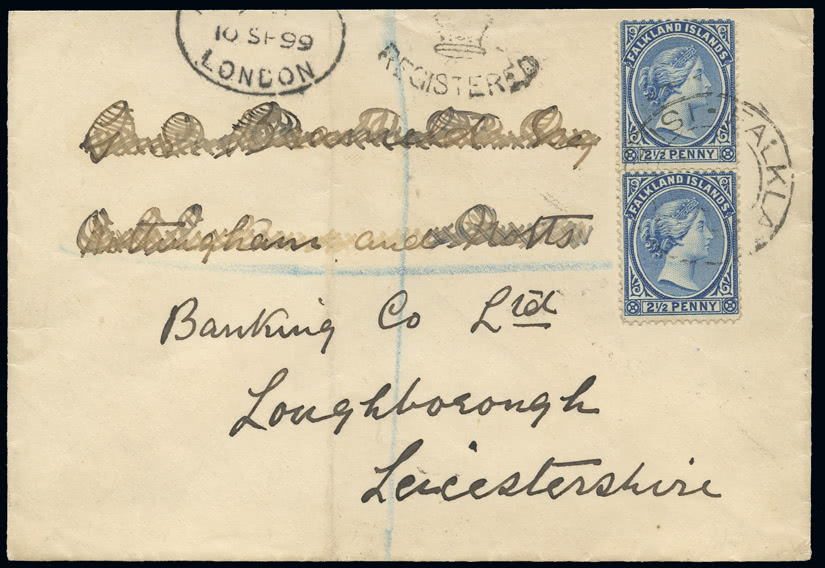 10 SP 99
LONDON
REGISTERED
FALKLAND ISLANDS
2½ PENNY
FALKLAND ISLANDS
2½ PENNY
FALKLA
Esq
Nottingham and Notts
Banking Co Ltd
Loughborough
Leicestershire